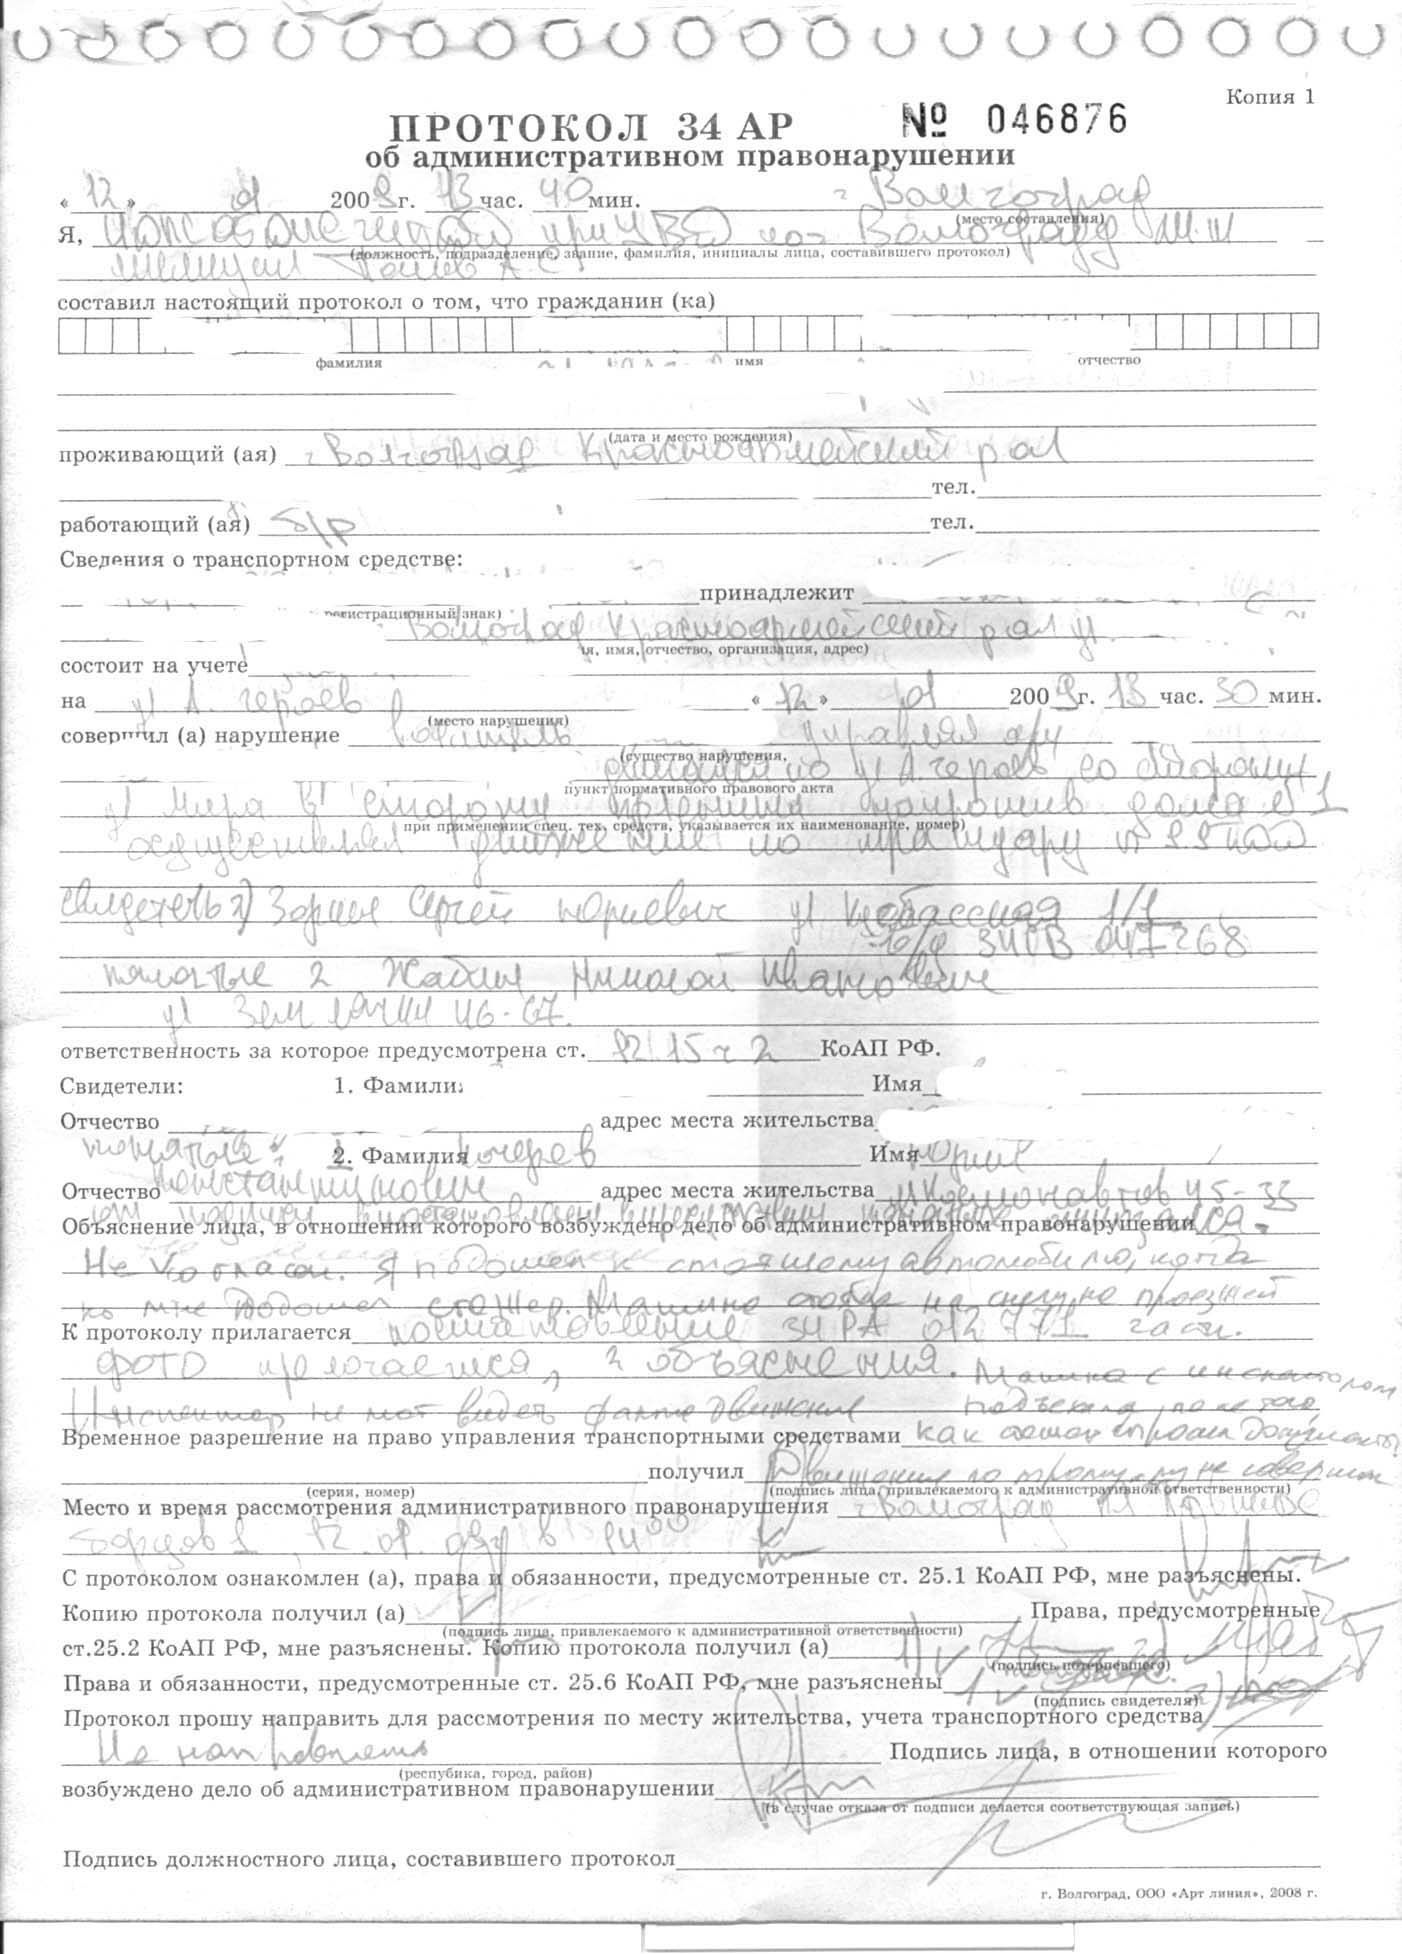 Копия 1
ПРОТОКОЛ 34 АР № 046876
об административном правонарушении
« 12 » 01 2009г. 13 час. 40 мин. г Волгоград
(место составления)
Я, при УВД по г Волгограду
(должность, подразделение, звание, фамилия, инициалы лица, составившего протокол)
милиции
составил настоящий протокол о том, что гражданин (ка)
фамилия имя отчество
(дата и место рождения)
проживающий (ая) г Волгоград Красноармейский рон
тел.
работающий (ая) б/р тел.
Сведения о транспортном средстве:
принадлежит
регистрационный знак)
Волгоград Красноармейский рон ул
я, имя, отчество, организация, адрес)
состоит на учете
на ул А. героев « 12 » 01 2009г. 13 час. 30 мин.
(место нарушения)
совершил (а) нарушение водитель управлял а/м
(существо нарушения,
двигался по ул А. героев со стороны
пункт нормативного правового акта
ул Мира в сторону напротив дома № 1
при применении спец. тех. средств, указывается их наименование, номер)
осуществлял движение по тротуару п 9.9 ПДД
свидетель Зорин Сергей Юриевич ул 1/1
34ОВ 047268
понятые 2 Жабин Николой Иванович
ул 46-67.
ответственность за которое предусмотрена ст. 12 15 ч 2 КоАП РФ.
Свидетели: 1. Фамили Имя
Отчество адрес места жительства
понятые 2. Фамилия Имя Юрий
Отчество Константинович адрес места жительства ул Космонавтов 45-33
Объяснение лица, в отношении которого возбуждено дело об административном правонарушении
Не согласен. Я подошел к стоящему автомобилю, когда
ко мне подошел стажер. Машина стоела на снегу на проезжей
К протоколу прилагается постановление 34 РА 012771 части.
фото прелогается, 2 объяснения. Машина с инспектором
Инспектор не мог видеть факта движения подъехала после того
Временное разрешение на право управления транспортными средствами как стажер спросил документы
получил Движения по тротуару не совершал
(серия, номер) (подпись лица, привлекаемого к административной ответственности)
Место и время рассмотрения административного правонарушения г Волгоград
1, 12.01.09г в 14 00
С протоколом ознакомлен (а), права и обязанности, предусмотренные ст. 25.1 КоАП РФ, мне разъяснены.
Копию протокола получил (а) Права, предусмотренные
(подпись лица, привлекаемого к административной ответственности)
ст.25.2 КоАП РФ, мне разъяснены. Копию протокола получил (а)
(подпись потерпевшего)
Права и обязанности, предусмотренные ст. 25.6 КоАП РФ, мне разъяснены
(подпись свидетеля)
Протокол прошу направить для рассмотрения по месту жительства, учета транспортного средства
Не направлять Подпись лица, в отношении которого
(респубика, город, район)
возбуждено дело об административном правонарушении
(в случае отказа от подписи делается соответствующая запись)
Подпись должностного лица, составившего протокол
г. Волгоград, ООО «Арт линия», 2008 г.